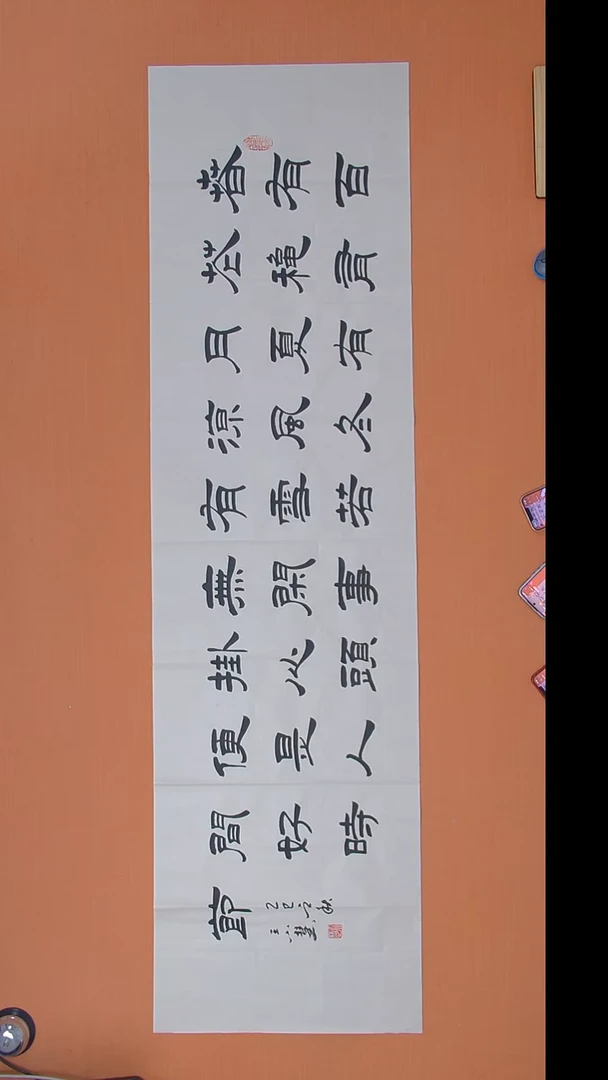 春有百
花穐有
月夏有
涼風冬
有雪若
無閑事
掛心頭
便是人
間好時
節
乙巳 秋